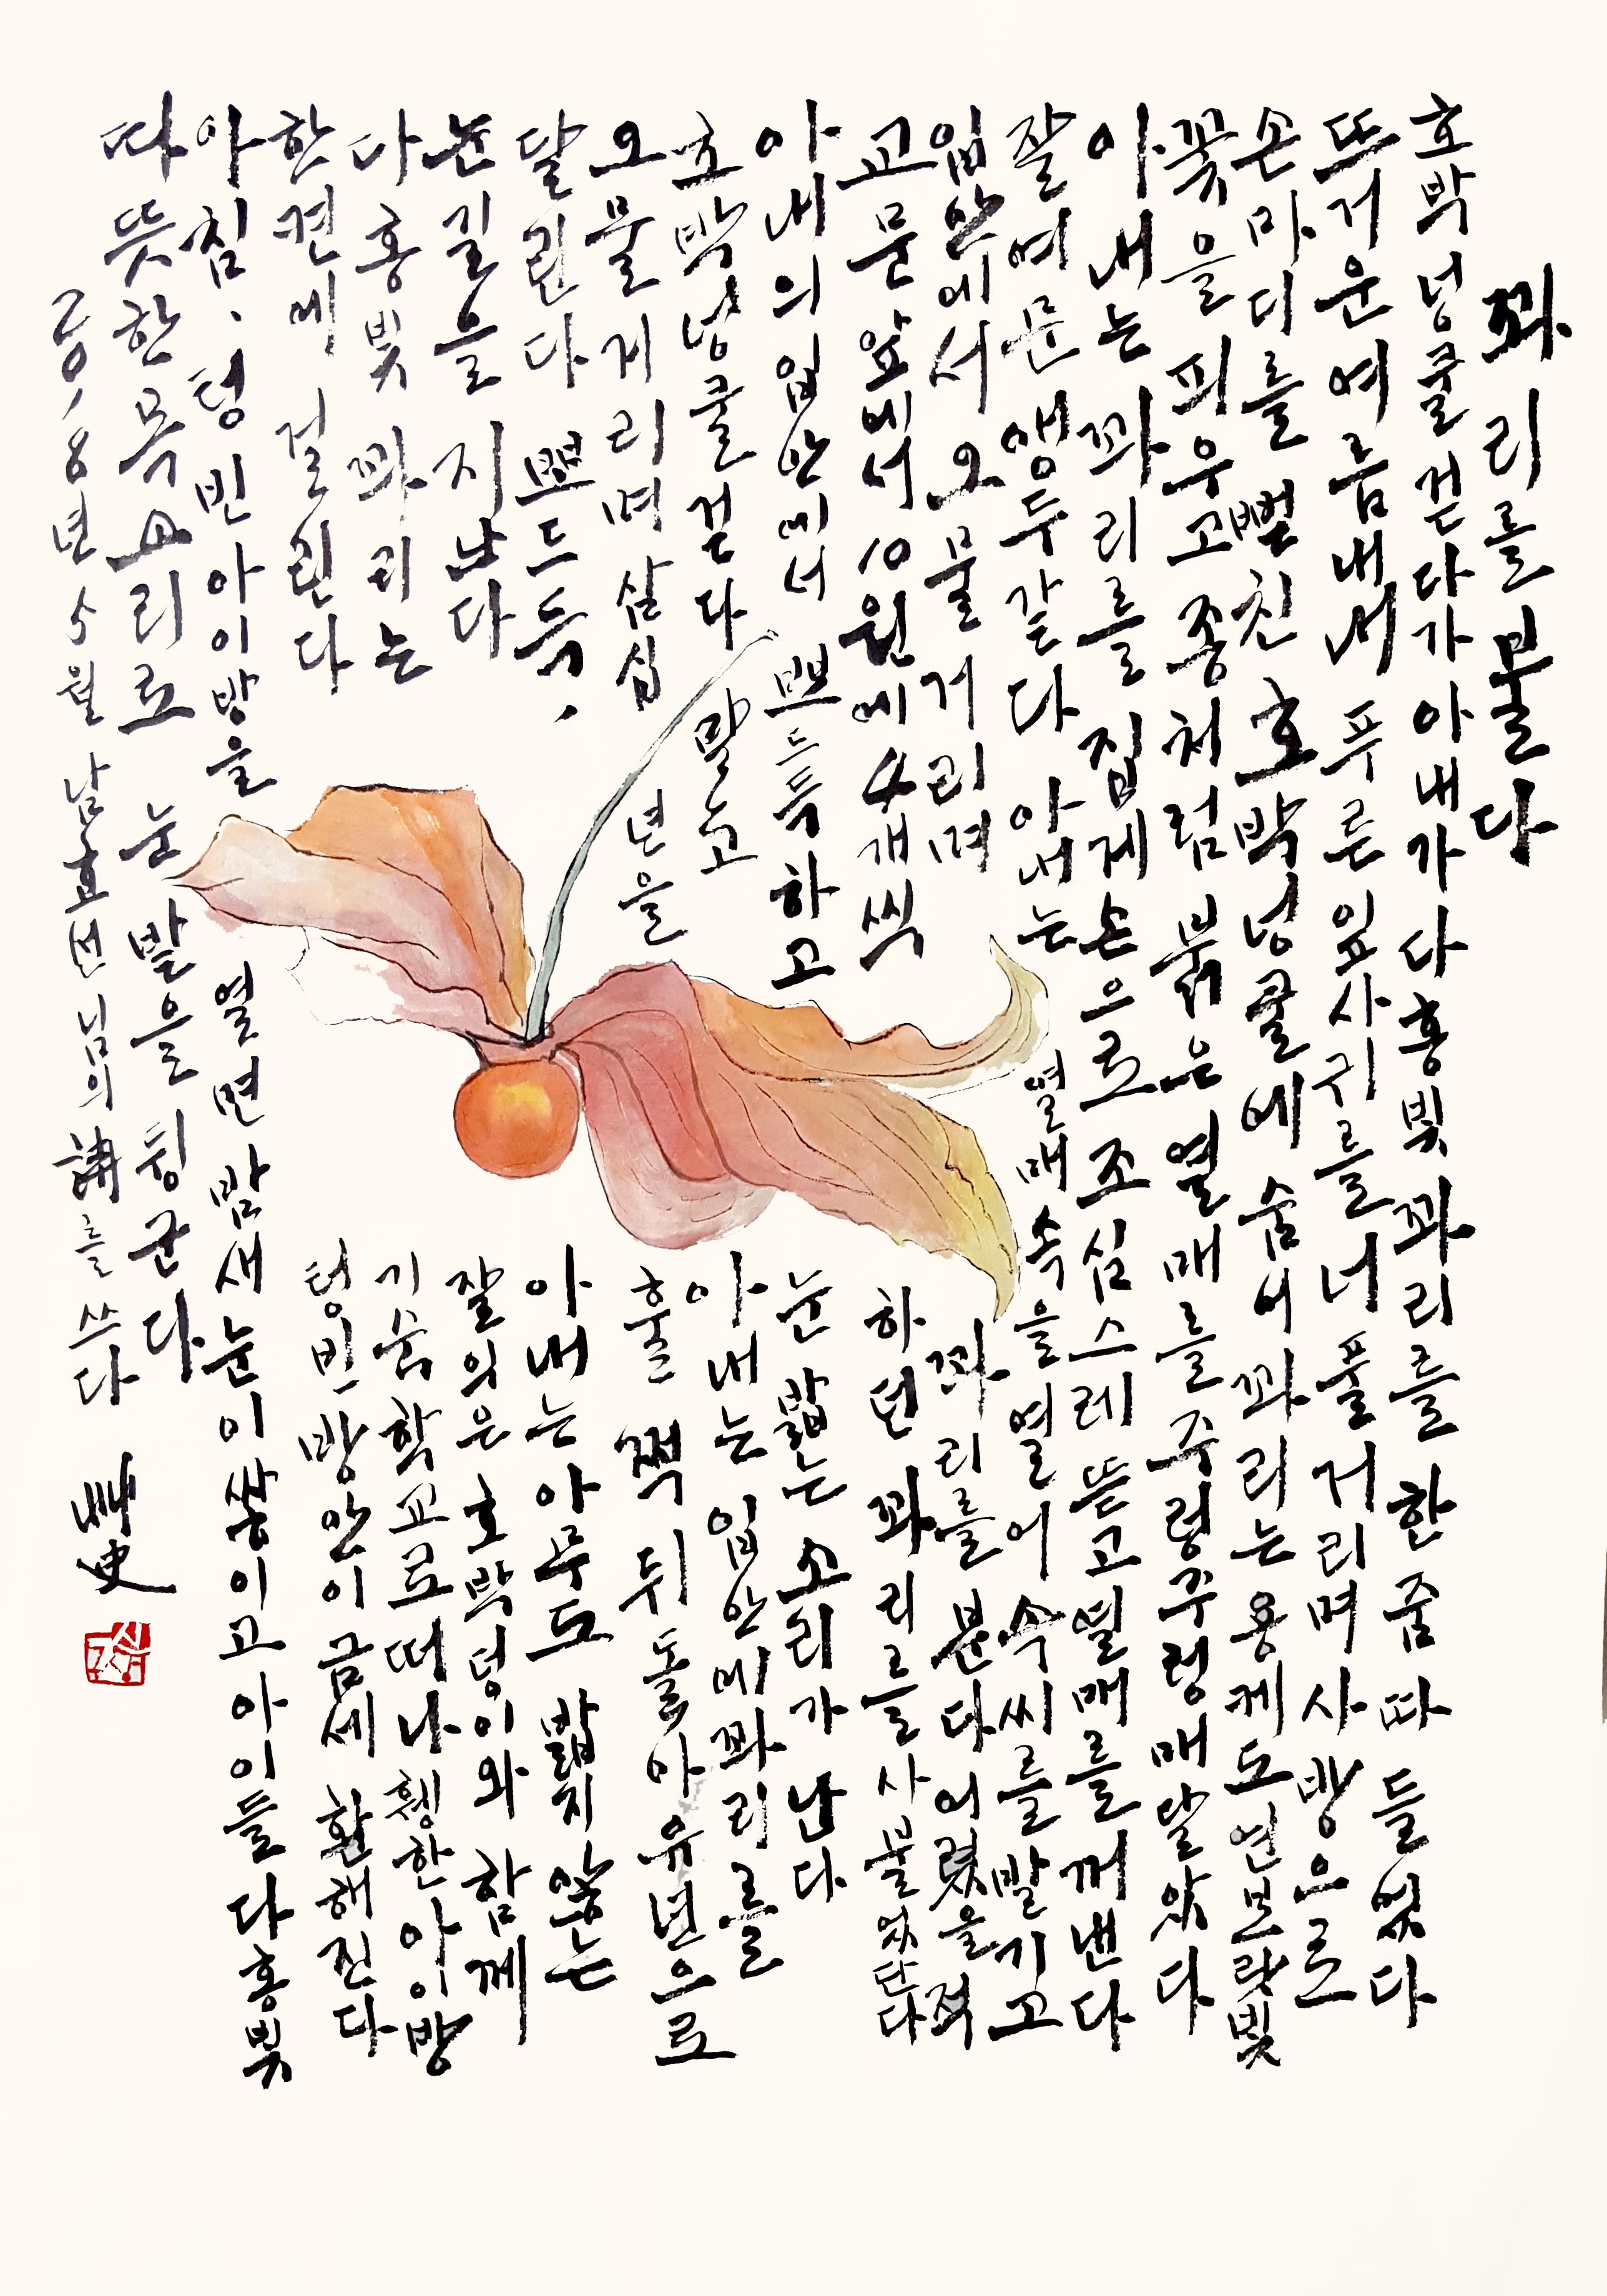 꽈리를 불다
호박넝쿨 걷다가 아내가 다홍빛 꽈리를 한 줌 따 들었다
뜨거운 여름내내 푸른 잎사귀를 너풀거리며 사방으로
손마디를 뻗친 호박넝쿨에 숨어 꽈리는 용케도 연보랏빛
꽃을 피우고 종처럼 붉은 열매를 주렁주렁 매달았다
아내는 꽈리를 집게손으로 조심스레 뜯고 열매를 꺼낸다
잘 여문 앵두 같다 아내는 열매 속을 열어 속씨를 발기고
입안에서 오물거리며 꽈리를 분다 어렸을 적
교문 앞에서 10원에 4개씩 하던 꽈리를 사 불었단다
아내의 입안에서 뽀드득 하고 눈 밟는 소리가 난다
호박넝쿨 걷다 말고 아내는 입안에 꽈리를
오물게리며 삼십 년을 훌쩍 뒤돌아 유년으로
달린다 뽀드득, 아내는 아무도 밟지 않는
눈길을 지났다 잘 익은 호박덩이와 함께
다홍빛 꽈리는 기숙학교로 떠나 휑한 아이방
한켠에 걸린다 텅 빈 방안이 금세 환해진다
아침, 텅 빈 아이방을 열면 밤새 눈이 쌓이고 아이들 다홍빛
따뜻한 목고리로 눈밭을 뒹군다
2018년 5월 남효선님의 詩를 쓰다 艸史